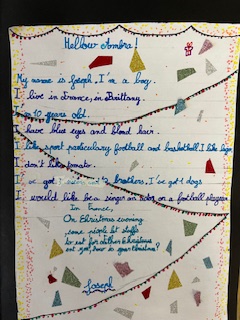 Hellow Ambra!
My name is Joseph, I'm a boy.
I live in France, in Brittany.
I'm 10 years old.
I have blue eyes and blond hair.
I like sport particulary football and basketball. I like
I don't like tomato.
I've got 2 brothers, I've got dogs
I would like be a singer an actor or a football player
In France,
On Christmas evening
some people let
to eat for father Christmas
and you, how is your Christmas?
Joseph